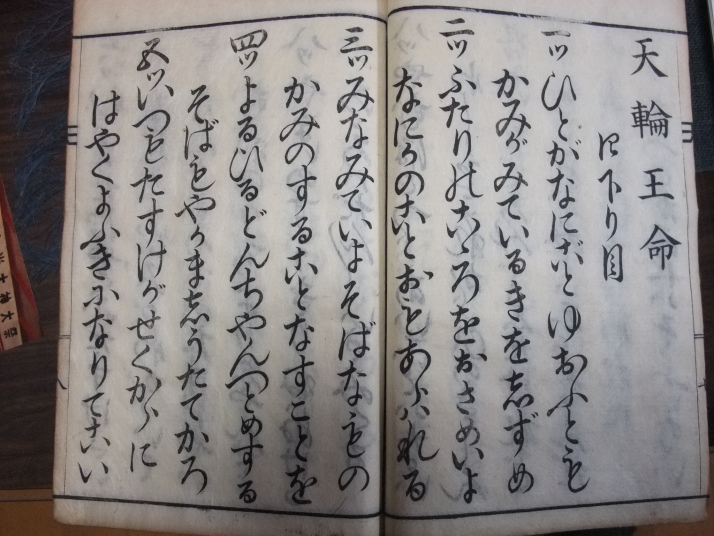 天輪王命
四下り目
一ッひとがなにごとゆおふとも
かみがみているきをしずめ
二ッふたりのこゝろをおさめいよ
なにかのことおもあらハれる
三ッみなみていよそばなもの
かみのすることなすことを
四ッよるひるどんちやんつとめする
そばもやかましうたてかろ
五ッいつもたすけがせくからに
はやくよふきになりてこい